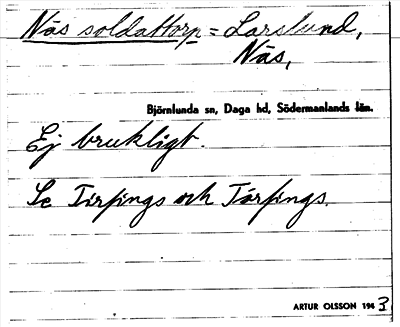 Näs soldattorp = Larslund,
Näs,
Björnlunda sn, Daga hd, Södermanlands län.
Ej brukligt.
Se Tirpings och Tärpings.
ARTUR OLSSON 1943